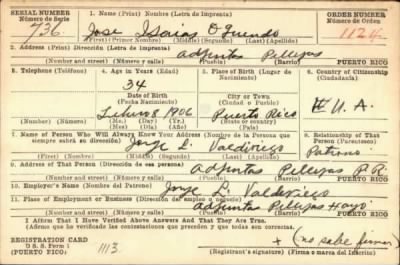 SERIAL NUMBER 1. Name (Print) Nombre (Letra de Imprenta) ORDER NUMBER
Número de Serie Número de Orden
736 Jose Isaias Oquendo 1124
First (Primer Nombre) (Middle) (Segundo) Last (Apellido)
2. Address (Print) Dirección (Letra de Imprenta)
Adjuntas Pellejas
Number and street (Número y calle) Town (Pueblo) (Barrio) PUERTO RICO
3. Telephone (Teléfono) 4. Age in Years (Edad) 5. Place of Birth (Lugar de Nacimiento) 6. Country of Citizenship (Ciudadanía)
34
Date of Birth (Fecha Nacimiento) City or Town (Ciudad o Pueblo)
8 1906 Puerto Rico E U. A.
(Mo.) (Day) (Yr.) State or country
(Mes) (Día) (Año) (Estado o país)
7. Name of Person Who Will Always Know Your Address (Nombre de la Persona que siempre sabrá su dirección) 8. Relationship of That Person (Parentesco)
Jorge L. Valdivieso Patrono
9. Address of That Person (Dirección de esa persona)
Adjuntas Pellejas P.R.
Number and street (Número y calle) Town (Pueblo) (Barrio) PUERTO RICO
10. Employer's Name (Nombre del Patrono)
Jorge L. Valdivieso
11. Place of Employment or Business (Dirección del empleo o negocio)
Adjuntas Pellejas
Number and street (Número y calle) Town (Pueblo) (Barrio) PUERTO RICO
I Affirm That I Have Verified Above Answers And That They Are True.
(Afirmo que he verificado las contestaciones que preceden y que todas son correctas).
REGISTRATION CARD
D S S. Form 1
(PUERTO RICO) 1113 + (no sabe firmar)
(Registrant's signature) (Firma o marca del Inscrito)